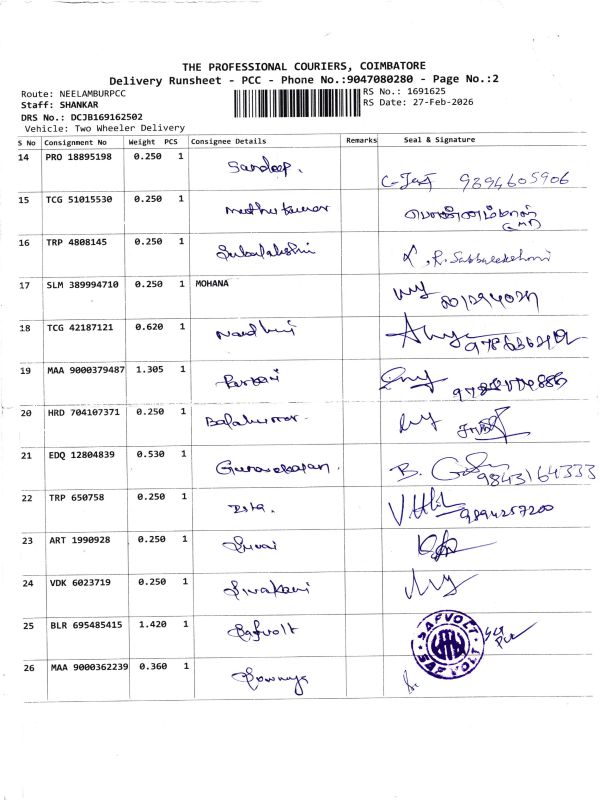 THE PROFESSIONAL COURIERS, COIMBATORE
Delivery Runsheet - PCC - Phone No.:9047080280 - Page No.:2
Route: NEELAMBURPCC
RS No.: 1691625
Staff: SHANKAR
RS Date: 27-Feb-2026
DRS No.: DCJB169162502
Vehicle: Two Wheeler Delivery
S No Consignment No Weight PCS Consignee Details Remarks Seal & Signature
14 PRO 18895198 0.250 1 Sandeep. 9894605906
15 TCG 51015530 0.250 1 muthu kumar
16 TRP 4808145 0.250 1 Subalakshmi
17 SLM 389994710 0.250 1 MOHANA
18 TCG 42187121 0.620 1
19 MAA 9000379487 1.305 1
20 HRD 704107371 0.250 1 Balakumar
21 EDQ 12804839 0.530 1 Gunasekaran. 9843164333
22 TRP 650758 0.250 1 9894257200
23 ART 1990928 0.250 1
24 VDK 6023719 0.250 1 Sivakami
25 BLR 695485415 1.420 1 Safvolt SAFVOLT SAFVOLT
26 MAA 9000362239 0.360 1 Sowmya